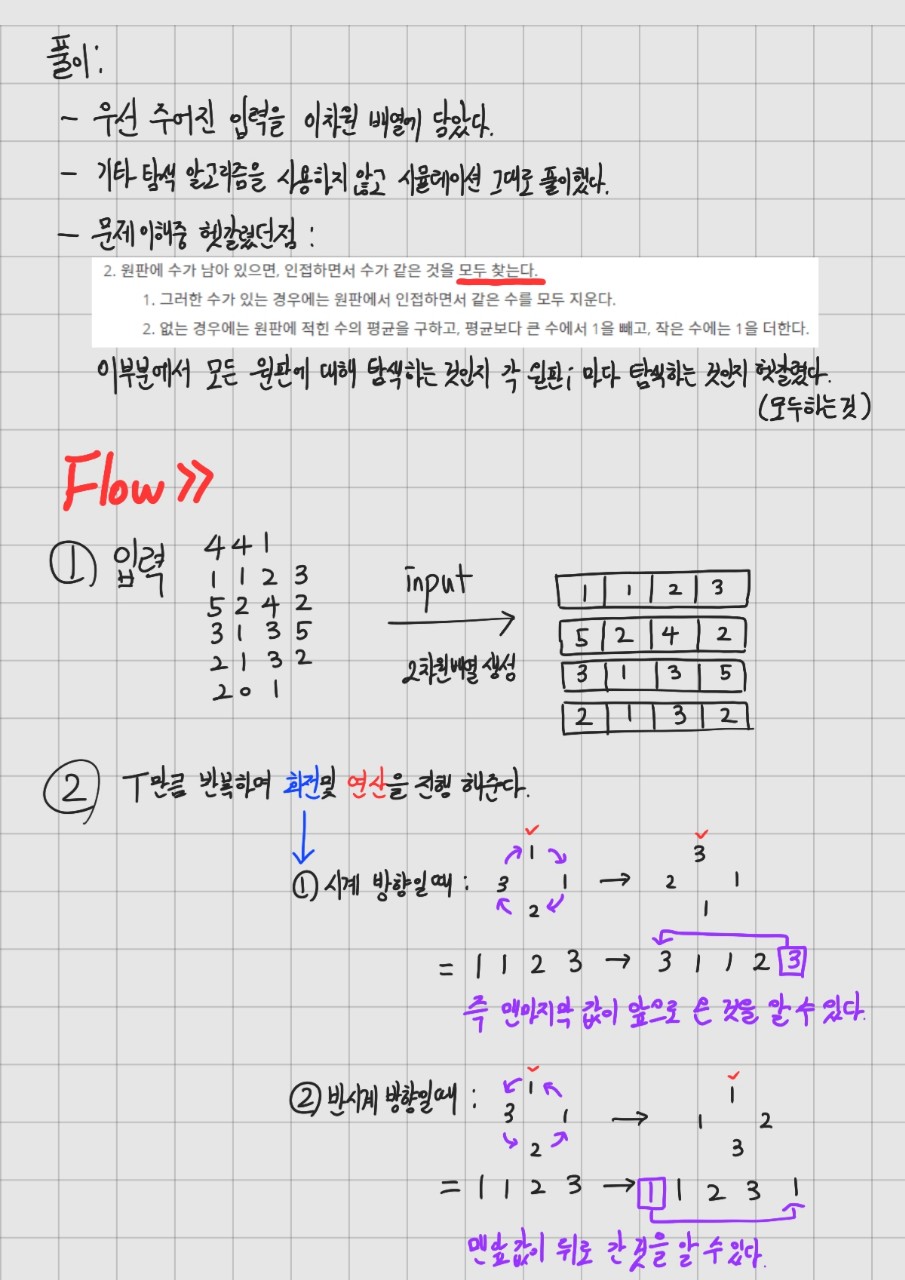 풀이:
- 우선 주어진 입력을 이차원 배열에 담았다.
- 기타 탐색 알고리즘을 사용하지 않고 시뮬레이션 그대로 풀이했다.
- 문제이해중 헷갈렸던점 :
2. 원판에 수가 남아 있으면, 인접하면서 수가 같은 것을 모두 찾는다.
1. 그러한 수가 있는 경우에는 원판에서 인접하면서 같은 수를 모두 지운다.
2. 없는 경우에는 원판에 적힌 수의 평균을 구하고, 평균보다 큰 수에서 1을 빼고, 작은 수에는 1을 더한다.
이부분에서 모든 원판에 대해 탐색하는 것인지 각 원판i 마다 탐색하는 것인지 헷갈렸다.
(모두하는것)
Flow >>
① 입력
4 4 1
1 1 2 3
5 2 4 2
3 1 3 5
2 1 3 2
2 0 1
input
2차원배열 생성
1 1 2 3
5 2 4 2
3 1 3 5
2 1 3 2
② T만큼 반복하여 회전및 연산을 진행 해준다.
① 시계 방향일때 :
1
3 1
2
→
3
2 1
1
= 1 1 2 3 → 3 1 1 2 3
즉 맨마지막 값이 앞으로 온 것을 알 수 있다.
② 반시계 방향일때 :
1
3 1
2
→
1
1 2
3
= 1 1 2 3 → 1 1 2 3 1
맨앞값이 뒤로 간것을 알 수 있다.